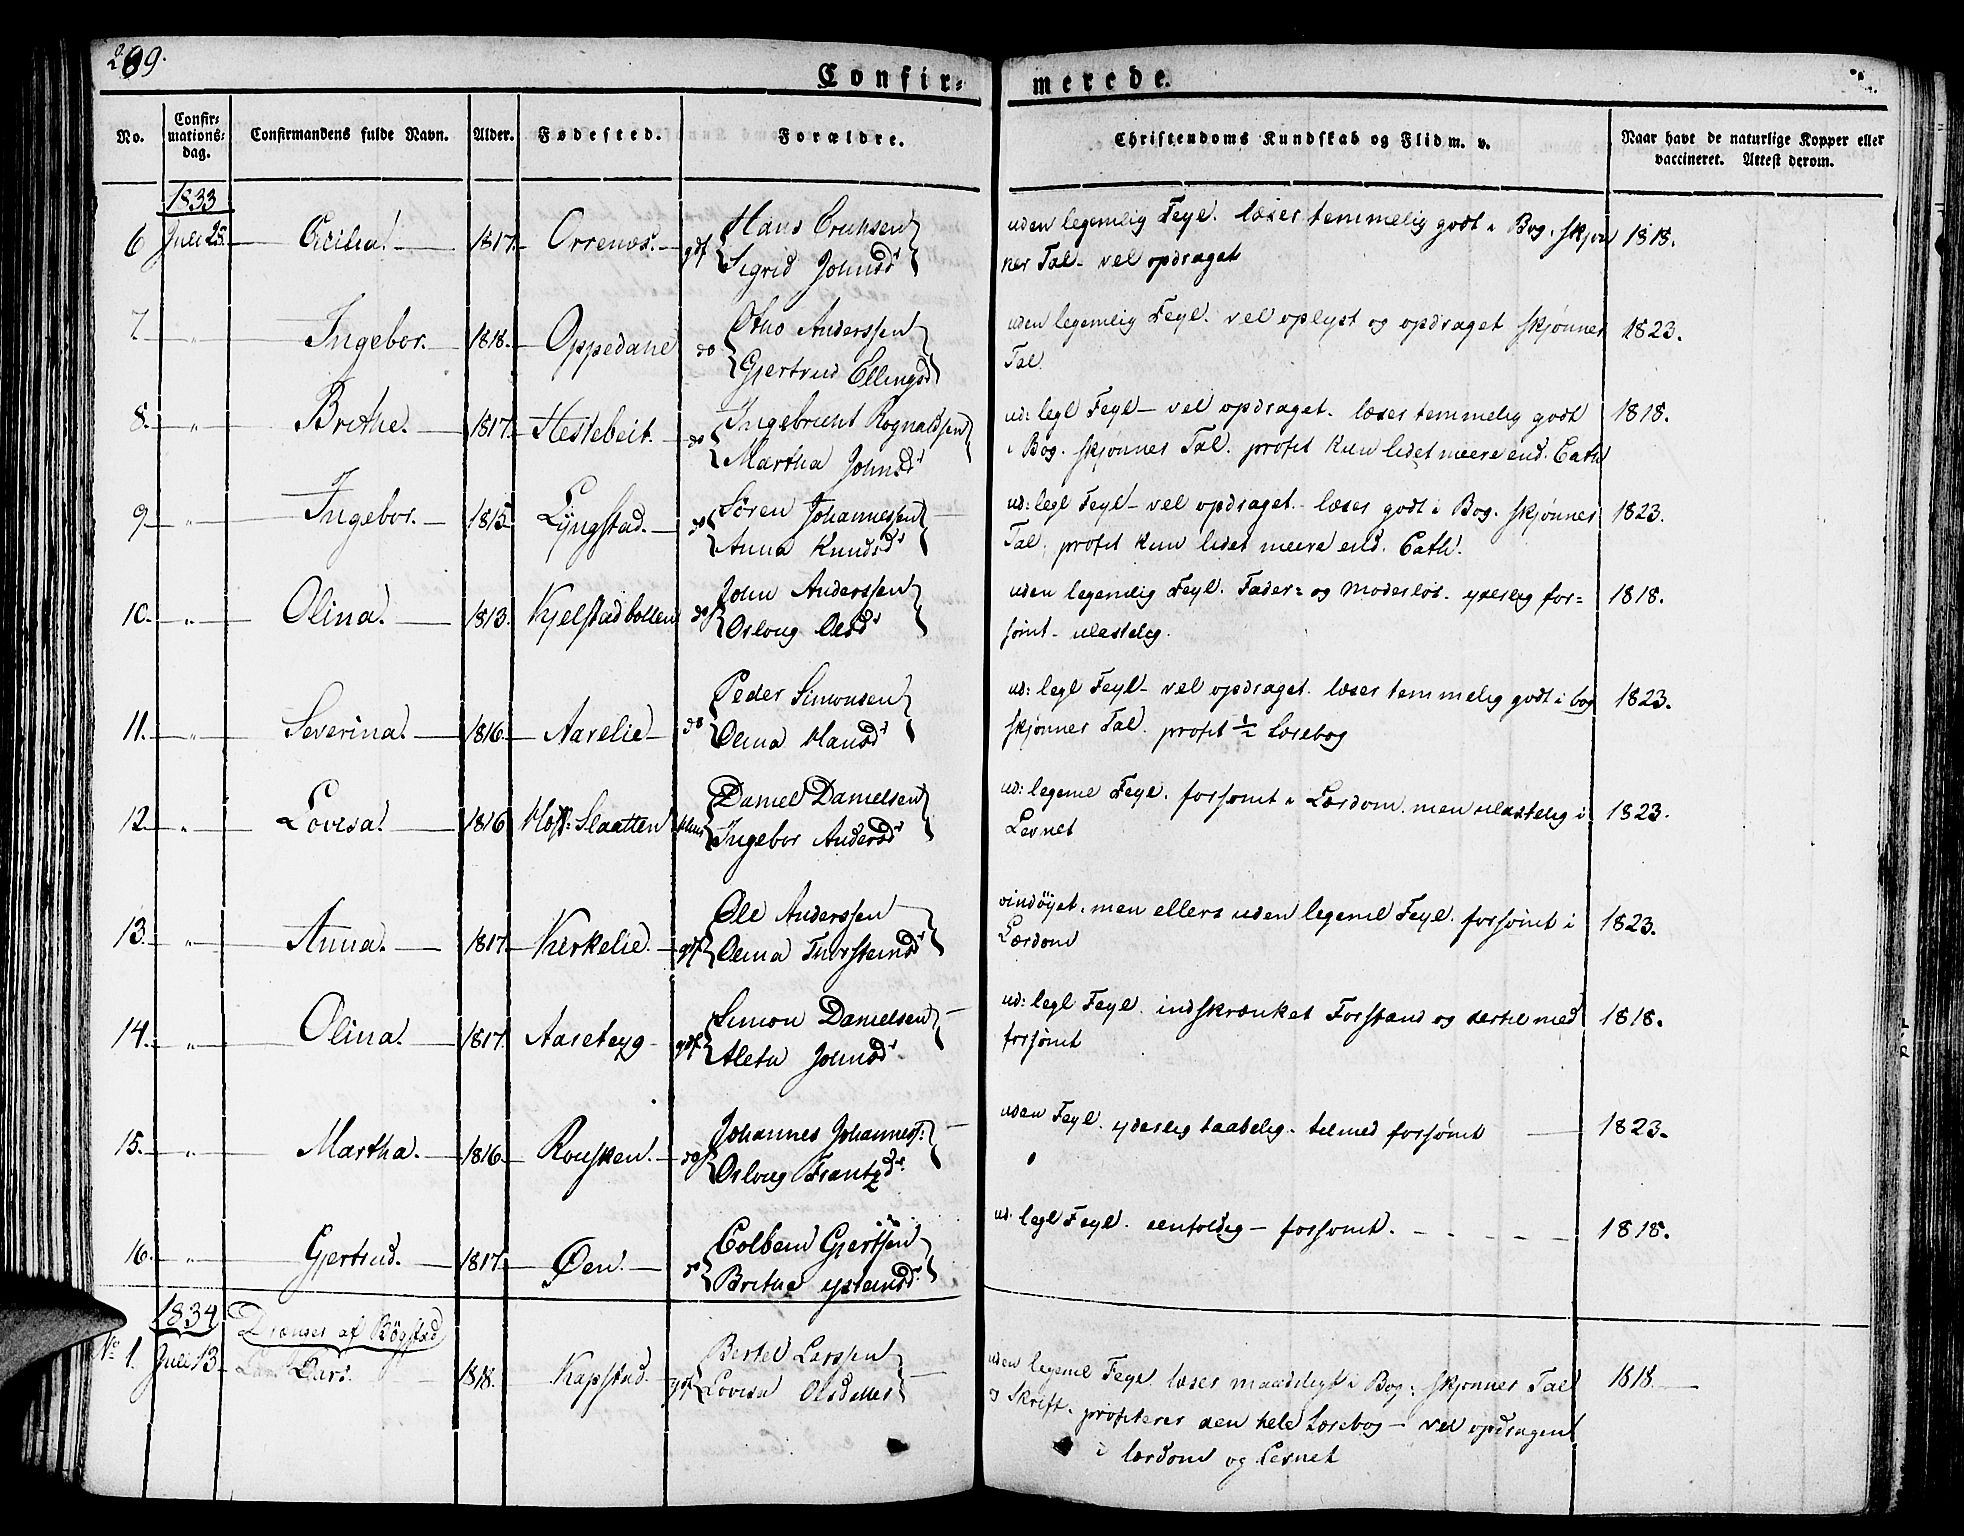 269.
Confir= merede.
No. Confir=mations=dag. Confirmandens fulde Navn. Alder. Fødested. Forældre. Christendoms Kundskab og Flid m. v. Naar havt de naturlige Kopper eller vaccineret. Attest derom.
1833
6 Juli 25. Cicilia. 1817. Orrenæs. gdf Hans Erichsen uden legemlig Feyl. læser temmelig godt i Bog. skjøn 1818.
Sigrid Johnsd. ner Tal - vel opdraget
7 " Ingebor. 1818. Oppedahl do Otho Anderssen uden legemlig Feyl. vel oplyst og opdraget skjønner 1823.
Gjertrud Ellingsd Tal.
8. " Brithe. 1817. Hestebeit. do Ingebricht Rognaldsen ud: legl Feyl - vel opdraget. læser temmelig godt 1818.
Martha Johnsd i Bog. skjønner Tal. profit kun lidet meere end. Cath
9 " Ingebor. 1815 Lyngstad. do Sören Johannessen ud: legl Feyl - vel opdraget. læser godt i Bog. skjønner 1823.
Anna Knudsd Tal. profit kun lidet meere end. Cath.
10. " Olina. 1813. Kjelstadbotten do John Anderssen uden legemlig Feyl. Fader= og Moderløs. yderlig for= 1818.
Osloug Olsd sømt - ulastelig.
11. " Severina. 1816. Aarelie do Peder Simonsen ud: legl Feyl - vel opdraget. læser temmelig godt i bog 1823.
Olina Hansd skjønner Tal. profit ½ Læsebog
12. " Lovisa. 1816 Slaatten Daniel Danielsen ud: legeml Feyl. forsømt i Lærdom. men ulastelig i 1823.
Ingebor Andersd Levnet
13. " Anna. 1817. Kirkelie. gdf Ole Anderssen vindöyet. men ellers uden legeml Feyl. forsømt i 1823.
Olina Thorsteinsd Lærdom
14. " Olina. 1817. Aaseteyg gdf Simon Danielsen ud: legl Feyl. indskrænket Forstand og dertil med 1818.
Aleta Johnsd. forsømt
15. " Martha. 1816. Rousken. do Johannes Johannes: uden Feyl. yderlig taabelig. tilmed forsømt 1823.
Osloug Frantzd.
16. " Gjertrud. 1817. Øen. do Colbein Gjertsen ud. legl Feyl. eenfoldig - forsømt. 1818.
Brithe Ysteinsd.
1834 Drenger af Bögstad
No 1. Juli 13. Lars 1818. Kapstad. gdf Bertel Larssen uden legeml Feyl. læser maadeligt i Bog. skjønner Tal 1818.
Lovisa Olsdatter og Skrift. profiterer den hele Læsebog - vel opdragen
i lærdom og Levnet